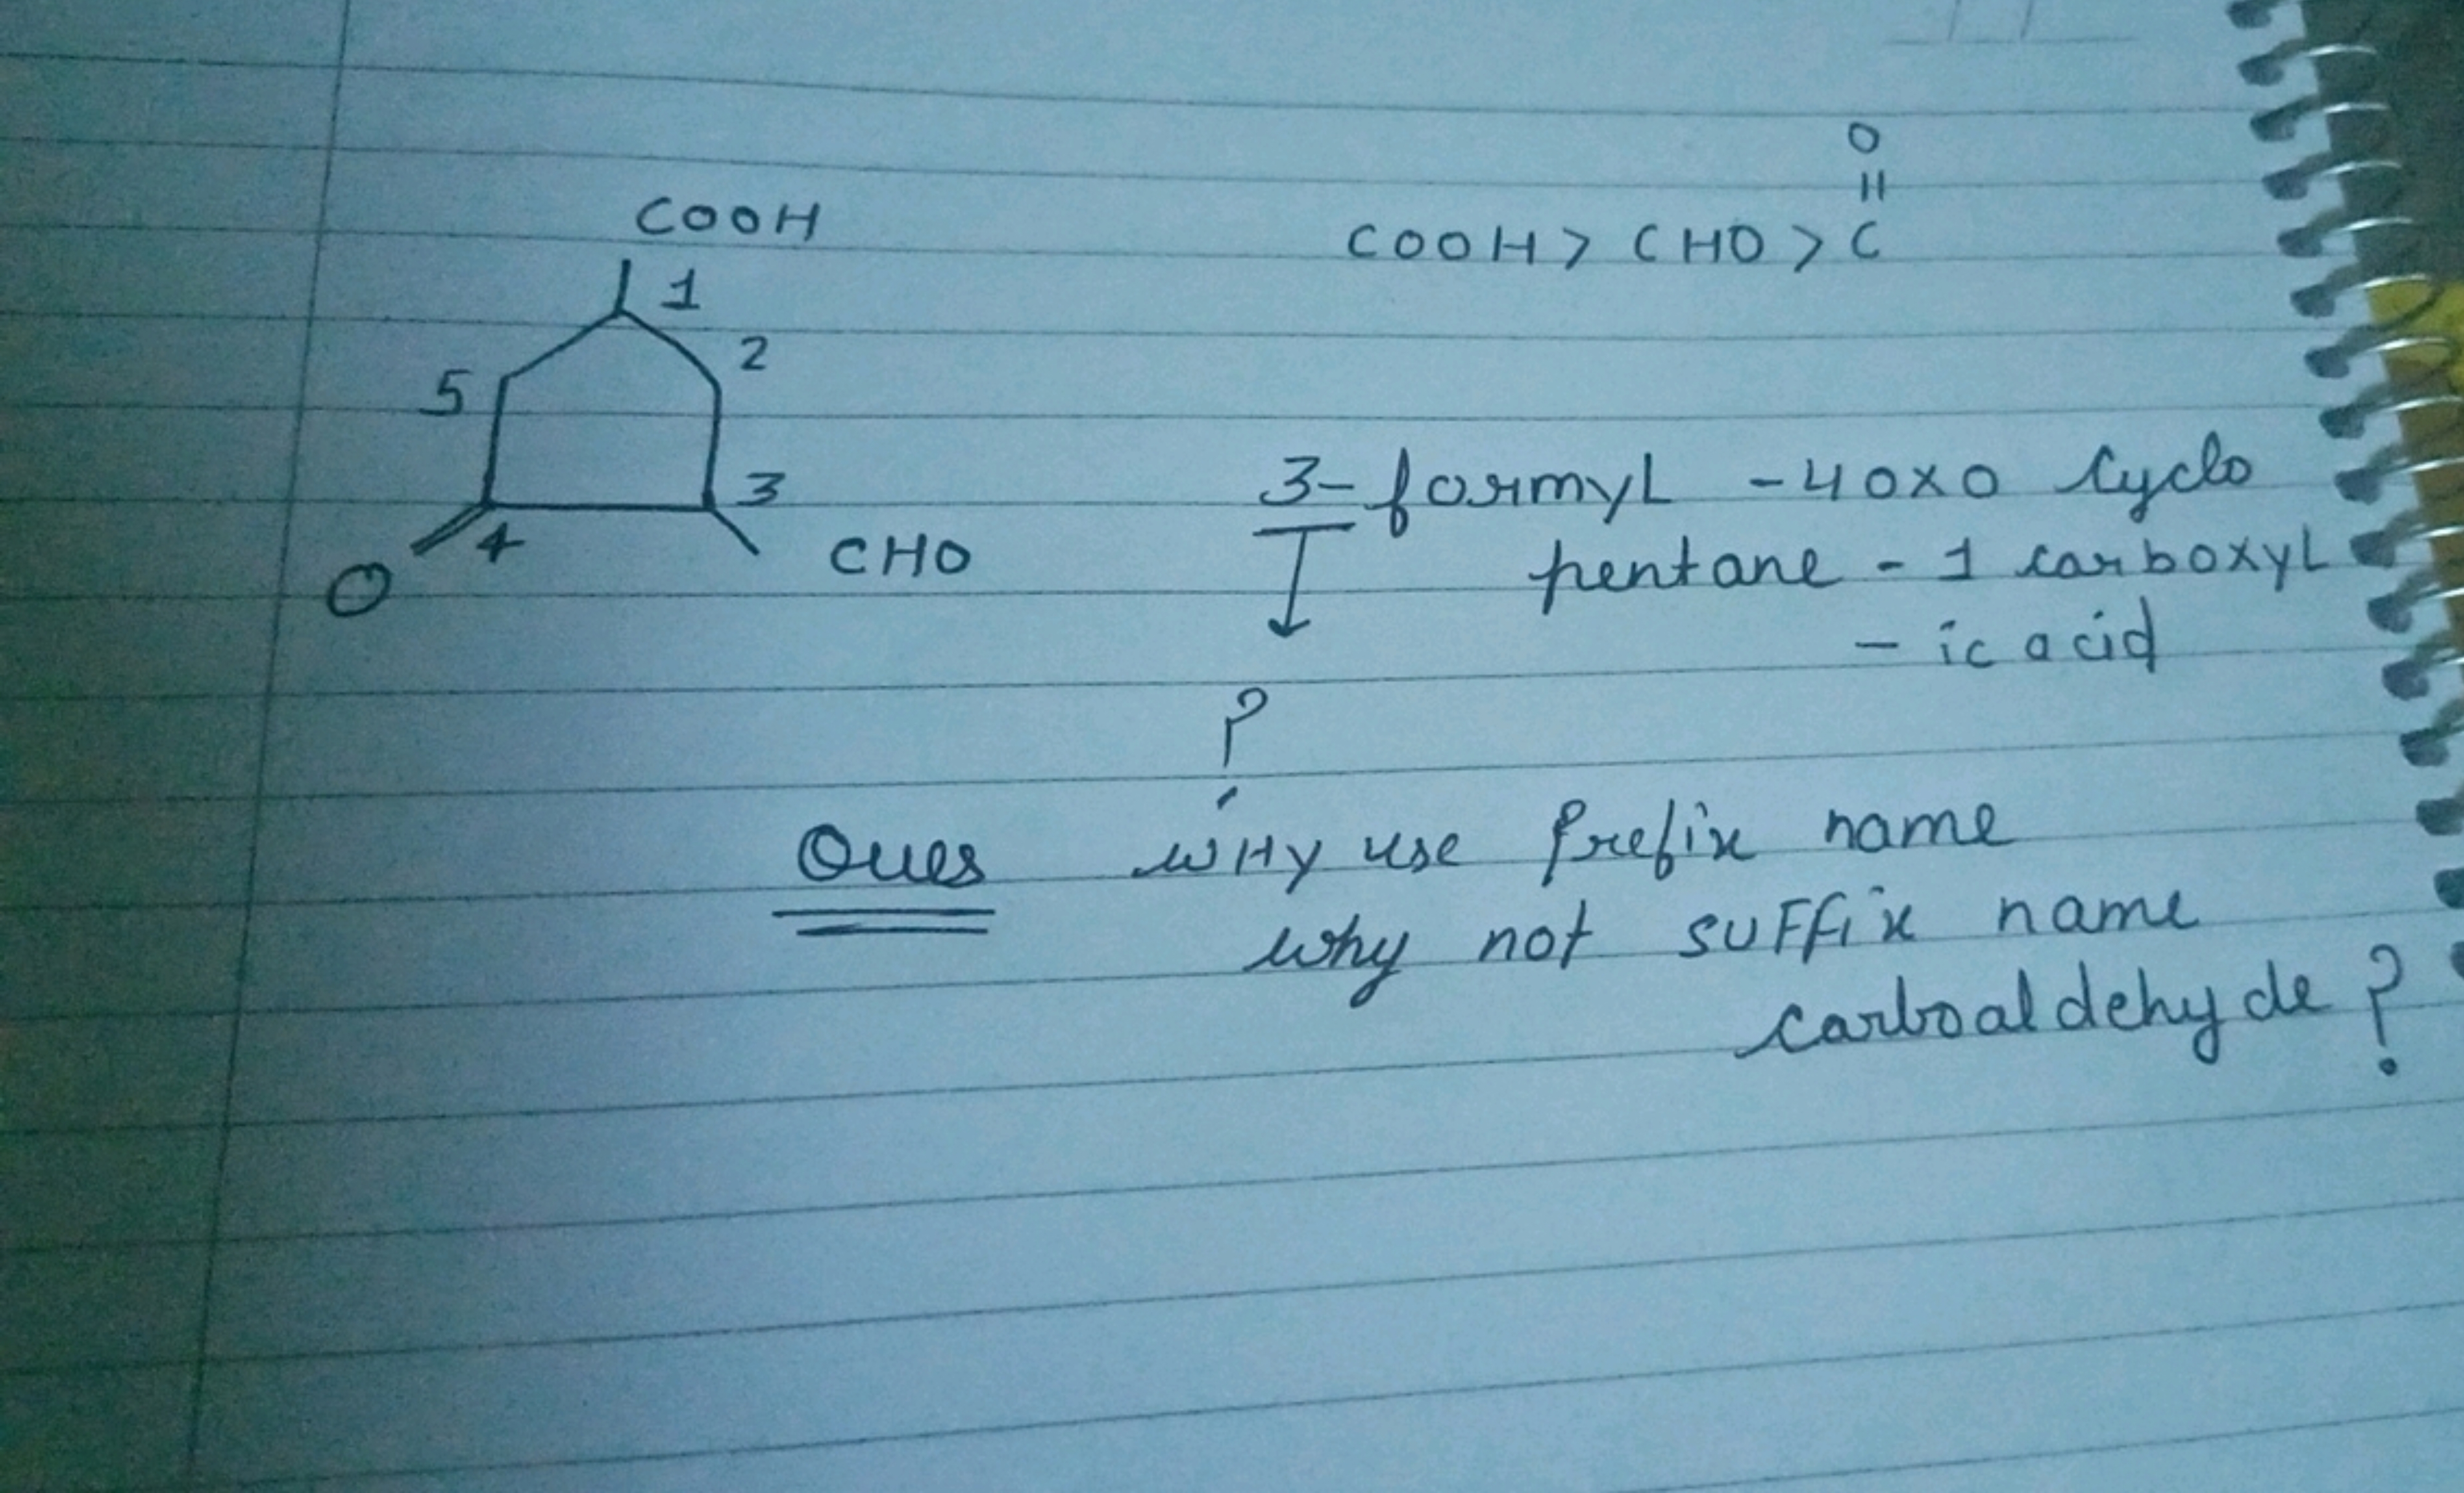 COOH
1
2
5
3
4
O
CHO
O
||
COOH > CHO > C
3- formyl - 4 oxo cyclo
pentane - 1 carboxyl
- ic acid
?
Ques WHY use prefix name
why not suffix name
carboaldehyde ?